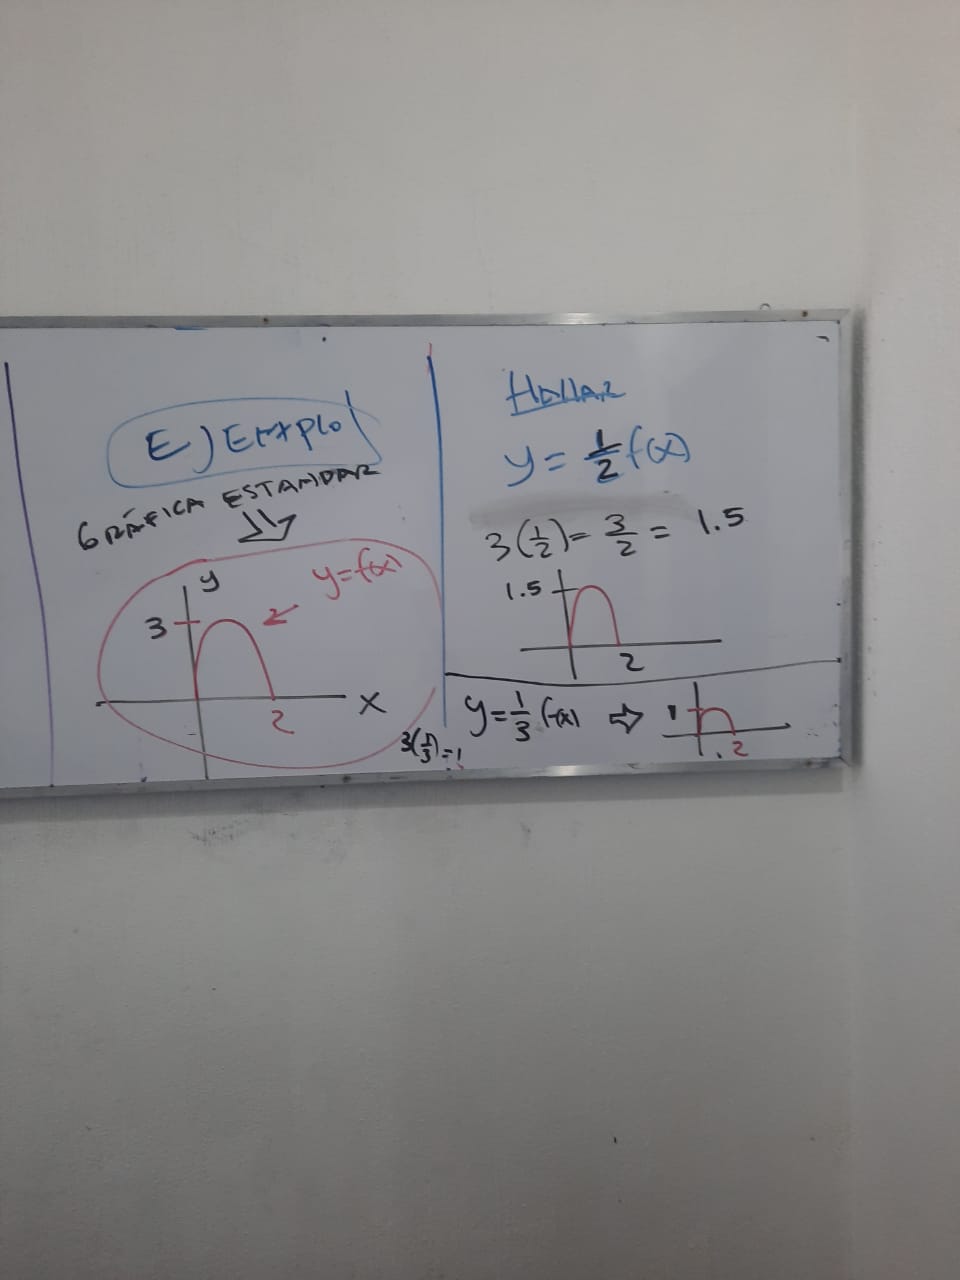 EJEMPLO
GRÁFICA ESTANDAR
y
y=f(x)
3
x
2
HALLAR
y = 1/2 f(x)
3(1/2)= 3/2 = 1.5
1.5
2
y=1/3 f(x) ⇨ 1
2
3(1/3)=1